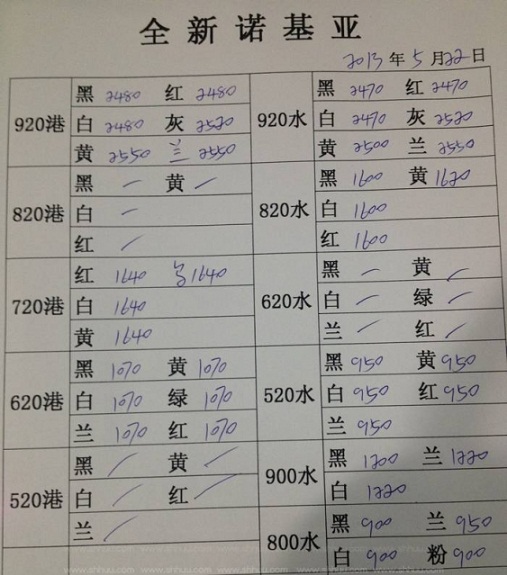 全新诺基亚
2013年5月22日
920港
黑 2480 红 2480
白 2480 灰 2520
黄 2550 兰 2550
920水
黑 2470 红 2470
白 2470 灰 2520
黄 2500 兰 2550
820港
黑 — 黄 —
白 —
红 —
820水
黑 1600 黄 1620
白 1600
红 1600
720港
红 1640 1640
白 1640
黄 1640
620水
黑 — 黄 —
白 — 绿 —
兰 — 红 —
620港
黑 1070 黄 1070
白 1070 绿 1070
兰 1070 红 1070
520水
黑 950 黄 950
白 950 红 950
兰 950
520港
黑 — 黄 —
白 — 红 —
兰 —
900水
黑 1200 兰 1220
白 1220
800水
黑 900 兰 950
白 900 粉 900